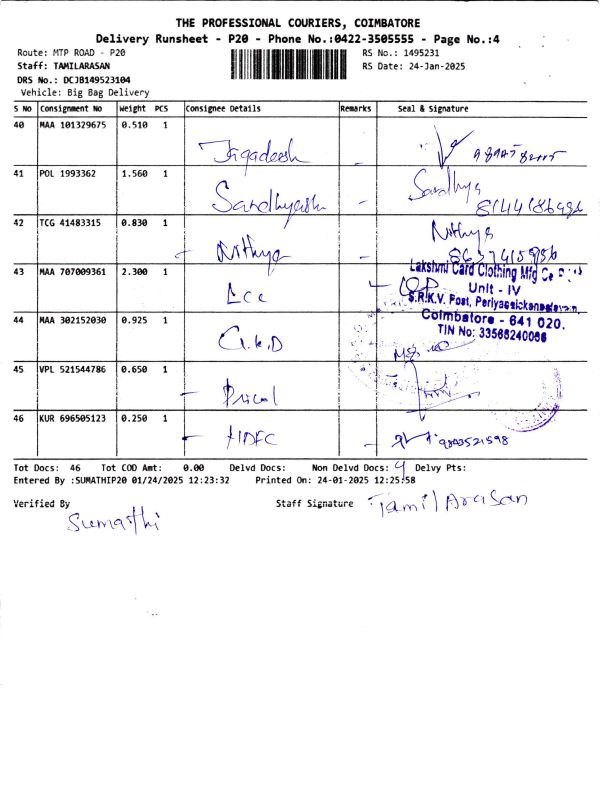 THE PROFESSIONAL COURIERS, COIMBATORE
Delivery Runsheet - P20 - Phone No.:0422-3505555 - Page No.:4
Route: MTP ROAD - P20
RS No.: 1495231
Staff: TAMILARASAN
RS Date: 24-Jan-2025
DRS No.: DCJB149523104
Vehicle: Big Bag Delivery
S No Consignment No Weight PCS Consignee Details Remarks Seal & Signature
40 MAA 101329675 0.510 1 Jagadeesh
41 POL 1993362 1.560 1 Sandhyash Sandhya
42 TCG 41483315 0.830 1 Nithya Nithya
8637415956
43 MAA 707009361 2.300 1 Lcc
Lakshmi Card Clothing Mfg Co
Unit - IV
S.R.K.V. Post, Periyanaickenpalayam,
Coimbatore - 641 020.
TIN No: 33566240086
44 MAA 302152030 0.925 1 G.k.D
45 VPL 521544786 0.650 1 Pricol
46 KUR 696505123 0.250 1 HDFC
Tot Docs: 46 Tot COD Amt: 0.00 Delvd Docs: Non Delvd Docs: 4 Delvy Pts:
Entered By :SUMATHIP20 01/24/2025 12:23:32 Printed On: 24-01-2025 12:25:58
Verified By Sumathi
Staff Signature Tamil Arasan